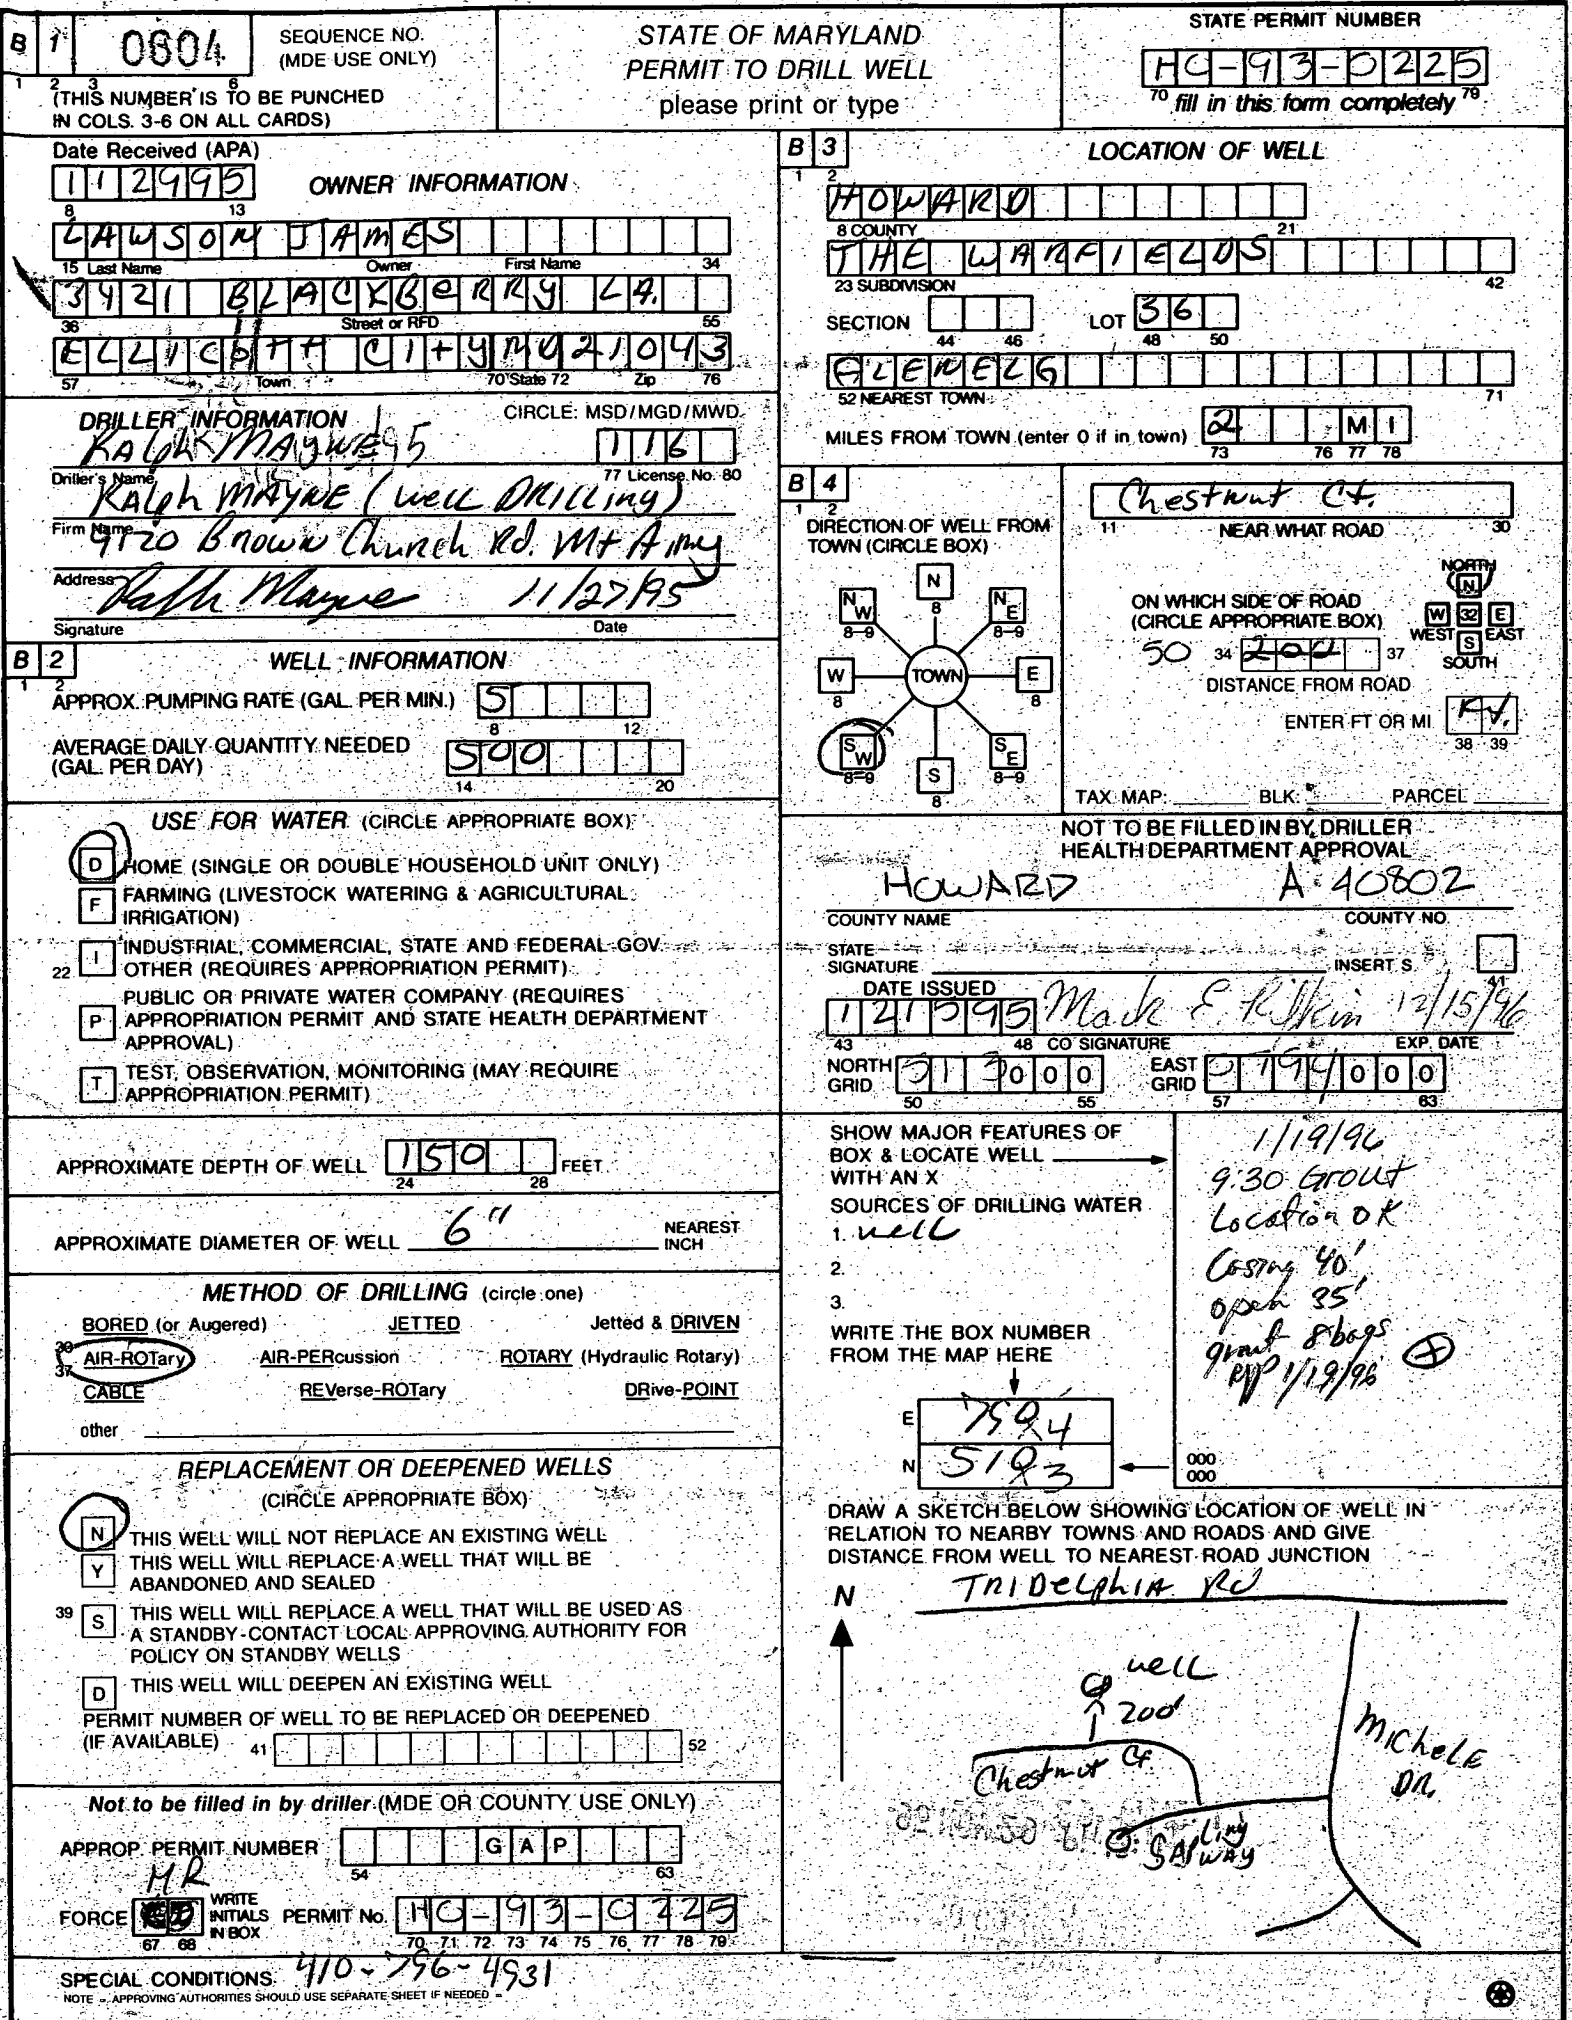 B 1 0804 SEQUENCE NO. (MDE USE ONLY)
1 2 3 6
(THIS NUMBER IS TO BE PUNCHED
IN COLS. 3-6 ON ALL CARDS)
STATE OF MARYLAND
PERMIT TO DRILL WELL
please print or type
STATE PERMIT NUMBER
HO-93-0225
70 fill in this form completely 79
Date Received (APA)
112995
8 13
OWNER INFORMATION
LAWSON JAMES
15 Last Name Owner First Name 34
3421 BLACKBERRY LA.
36 Street or RFD 55
ELLICOTT CITY MD 21043
57 Town 70 State 72 Zip 76
DRILLER INFORMATION CIRCLE: MSD/MGD/MWD
Ralph MAYNE 116
Driller's Name 77 License No. 80
Ralph MAYNE (well DRILLing)
Firm Name
9120 Brown Church Rd. Mt Airy
Address
Ralph Mayne 11/27/95
Signature Date
B 2 WELL INFORMATION
1 2
APPROX. PUMPING RATE (GAL. PER MIN.) 5
8 12
AVERAGE DAILY QUANTITY NEEDED
(GAL. PER DAY) 500
14 20
USE FOR WATER (CIRCLE APPROPRIATE BOX)
D HOME (SINGLE OR DOUBLE HOUSEHOLD UNIT ONLY)
F FARMING (LIVESTOCK WATERING & AGRICULTURAL
IRRIGATION)
22 I INDUSTRIAL, COMMERCIAL, STATE AND FEDERAL GOV.
OTHER (REQUIRES APPROPRIATION PERMIT)
P PUBLIC OR PRIVATE WATER COMPANY (REQUIRES
APPROPRIATION PERMIT AND STATE HEALTH DEPARTMENT
APPROVAL)
T TEST, OBSERVATION, MONITORING (MAY REQUIRE
APPROPRIATION PERMIT)
APPROXIMATE DEPTH OF WELL 150 FEET
24 28
APPROXIMATE DIAMETER OF WELL 6" NEAREST
INCH
METHOD OF DRILLING (circle one)
BORED (or Augered) JETTED Jetted & DRIVEN
30 AIR-ROTary AIR-PERcussion ROTARY (Hydraulic Rotary)
37 CABLE REVerse-ROTary DRive-POINT
other
REPLACEMENT OR DEEPENED WELLS
(CIRCLE APPROPRIATE BOX)
N THIS WELL WILL NOT REPLACE AN EXISTING WELL
Y THIS WELL WILL REPLACE A WELL THAT WILL BE
ABANDONED AND SEALED
39 S THIS WELL WILL REPLACE A WELL THAT WILL BE USED AS
A STANDBY-CONTACT LOCAL APPROVING AUTHORITY FOR
POLICY ON STANDBY WELLS
D THIS WELL WILL DEEPEN AN EXISTING WELL
PERMIT NUMBER OF WELL TO BE REPLACED OR DEEPENED
(IF AVAILABLE) 41 52
Not to be filled in by driller (MDE OR COUNTY USE ONLY)
APPROP. PERMIT NUMBER GAP
54 63
MR
FORCE WRITE INITIALS IN BOX PERMIT No. HO-93-0225
67 68 70 71 72 73 74 75 76 77 78 79
SPECIAL CONDITIONS 410-796-4931
NOTE - APPROVING AUTHORITIES SHOULD USE SEPARATE SHEET IF NEEDED -
B 3 LOCATION OF WELL
1 2
HOWARD
8 COUNTY 21
THE WARFIELDS
23 SUBDIVISION 42
SECTION LOT 36
44 46 48 50
GLENELG
52 NEAREST TOWN 71
MILES FROM TOWN (enter 0 if in town) 2 MI
73 76 77 78
B 4
1 2
DIRECTION OF WELL FROM
TOWN (CIRCLE BOX)
N 8
NW 8-9 NE 8-9
W 8 TOWN E 8
SW 8-9 SE 8-9
S 8
Chestnut Ct.
11 NEAR WHAT ROAD 30
ON WHICH SIDE OF ROAD
(CIRCLE APPROPRIATE BOX)
NORTH N
W 32 E
WEST EAST
S SOUTH
50 34 200 37
DISTANCE FROM ROAD
ENTER FT OR MI Ft.
38 39
TAX MAP: BLK: PARCEL
NOT TO BE FILLED IN BY DRILLER
HEALTH DEPARTMENT APPROVAL
HOWARD A 40802
COUNTY NAME COUNTY NO.
STATE
SIGNATURE INSERT S 41
DATE ISSUED
121595 12/15/96
43 48 CO SIGNATURE EXP. DATE
NORTH GRID 513000 EAST GRID 0794000
50 55 57 63
SHOW MAJOR FEATURES OF
BOX & LOCATE WELL
WITH AN X
SOURCES OF DRILLING WATER
1. well
2.
3.
WRITE THE BOX NUMBER
FROM THE MAP HERE
E 7994
N 5193
1/19/96
9:30 Grout
Location OK
Casing 40'
open 35'
grout 8 bags
1/19/96
000
000
DRAW A SKETCH BELOW SHOWING LOCATION OF WELL IN
RELATION TO NEARBY TOWNS AND ROADS AND GIVE
DISTANCE FROM WELL TO NEAREST ROAD JUNCTION
N TRIDelphIA Rd
well
200'
Chestnut Ct
MICHELE
DR.
SAILING
WAY